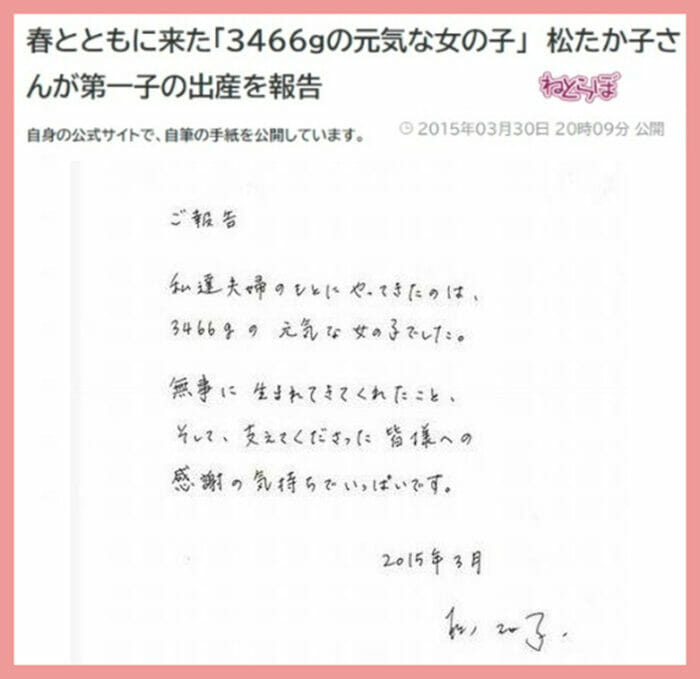 春とともに来た「3466gの元気な女の子」 松たか子さ
んが第一子の出産を報告
ねとらぼ
自身の公式サイトで、自筆の手紙を公開しています。
2015年03月30日 20時09分 公開
ご報告
私達夫婦のもとにやってきたのは、
3466gの 元気な女の子でした。
無事に生まれてきてくれたこと、
そして、支えてくださった皆様への
感謝の気持ちでいっぱいです。
2015年3月